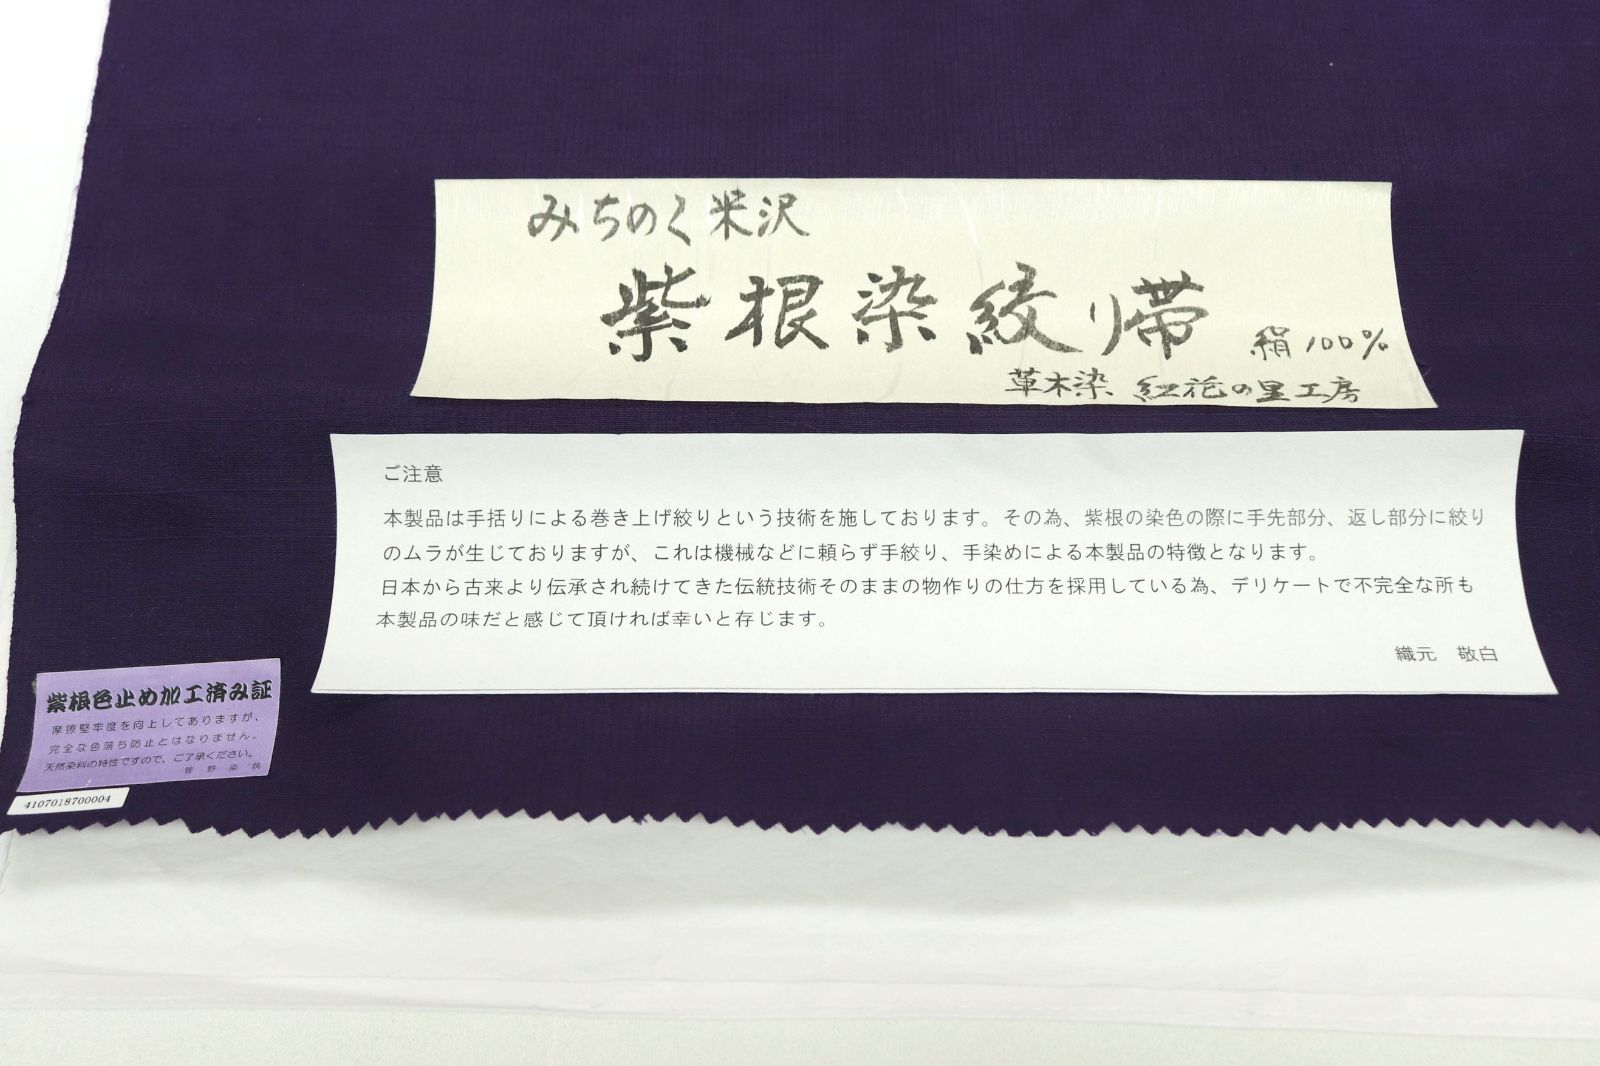 みちのく米沢
紫根染絞り帯 絹100%
草木染 紅花の里工房
ご注意
本製品は手括りによる巻き上げ絞りという技術を施しております。その為、紫根の染色の際に手先部分、返し部分に絞り
のムラが生じておりますが、これは機械などに頼らず手絞り、手染めによる本製品の特徴となります。
日本から古来より伝承され続けてきた伝統技術そのままの物作りの仕方を採用している為、デリケートで不完全な所も
本製品の味だと感じて頂ければ幸いと存じます。
織元 敬白
紫根色止め加工済み証
摩擦堅牢度を向上してありますが、
完全な色落ち防止とはなりません。
天然染料の特性ですので、ご了承ください。
菅野染
4107018700004